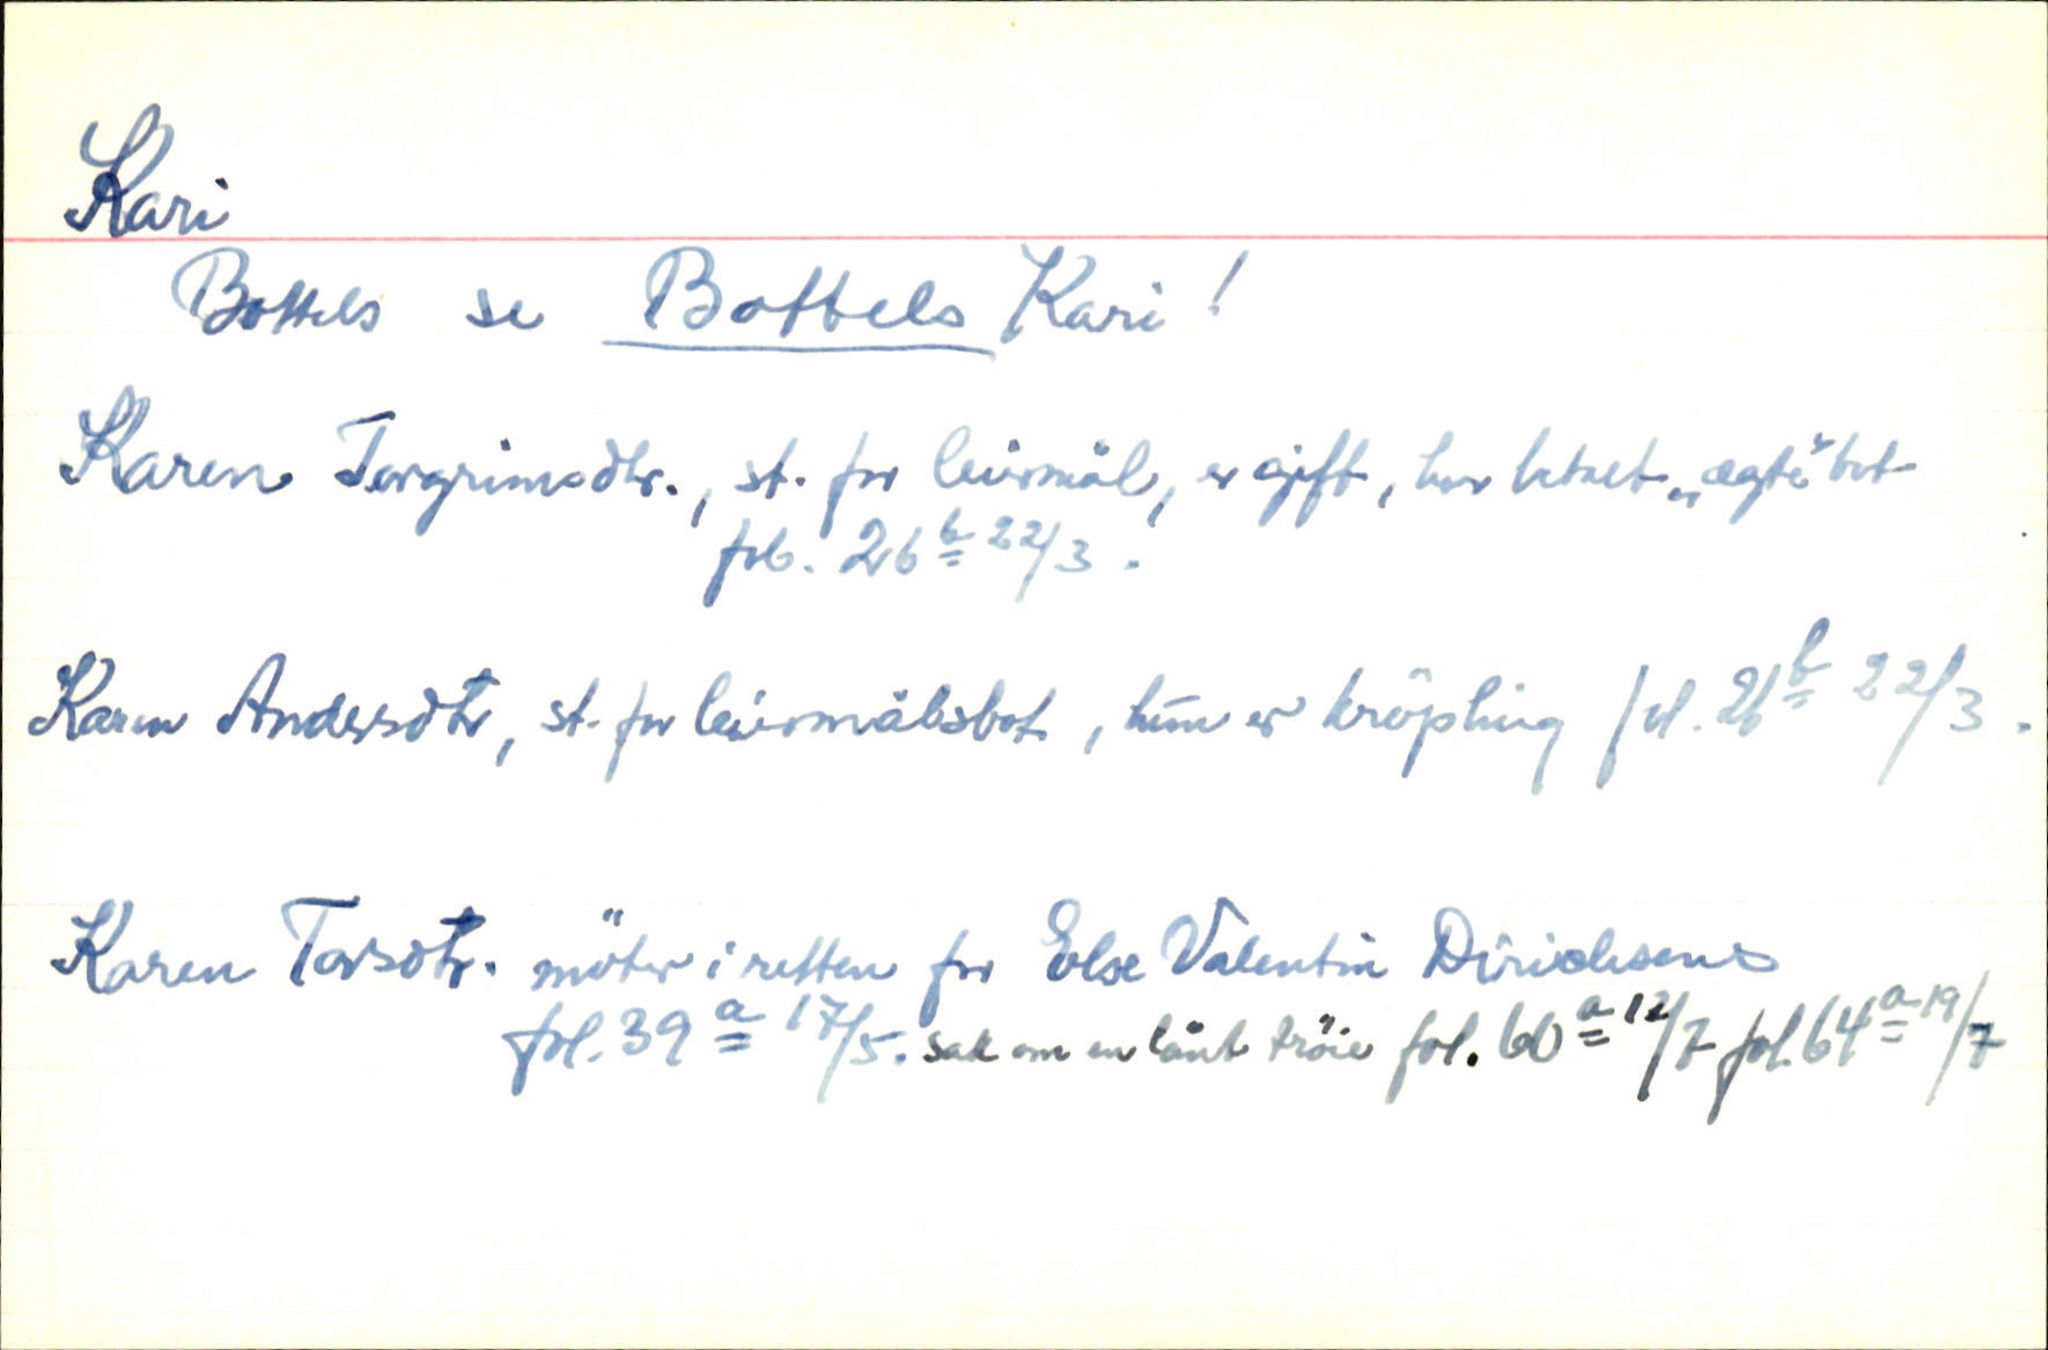 Kari
Bottels se Bottels Kari!
Karen Torgrimsdtr., st. for leiermål, er gift, har betalt „ægte" bot
fol. 26 b 22/3.
Karen Andersdtr, st. for leiermålsbot, hun er krøpling fol. 26 b 22/3.
Karen Torsdtr. möter i retten for Else Valentin Dirichsens
fol. 39 a 17/5. sak om en lånt tröie fol. 60 a 12/7 fol. 64 a 19/7